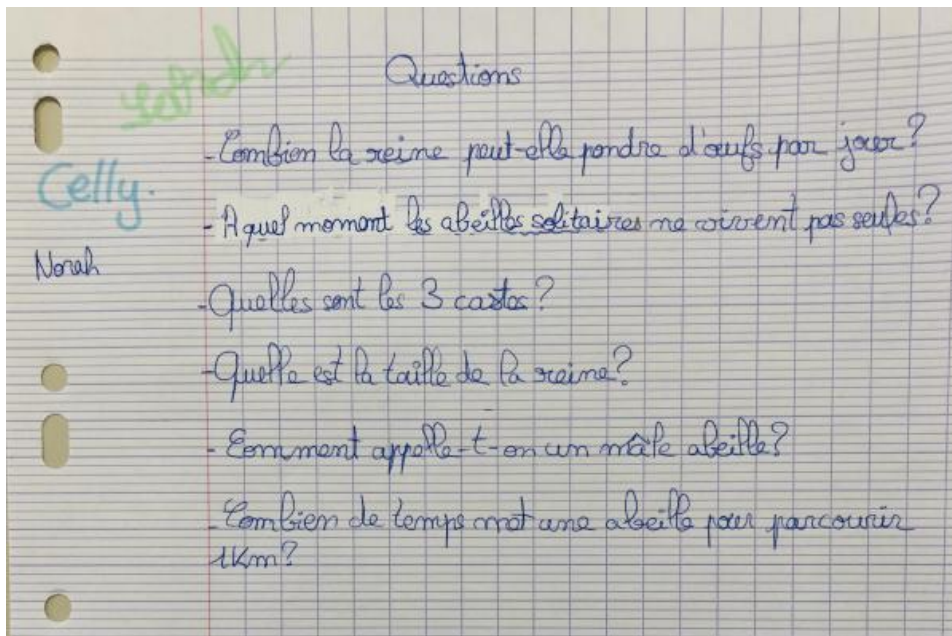 Questions
Celly.
Norah
- Combien la reine peut-elle pondre d'œufs par jour?
- A quel moment les abeilles solitaires ne vivent pas seules?
- Quelles sont les 3 castes?
- Quelle est la taille de la reine?
- Comment appelle-t-on un mâle abeille?
- Combien de temps met une abeille pour parcourir
1Km?